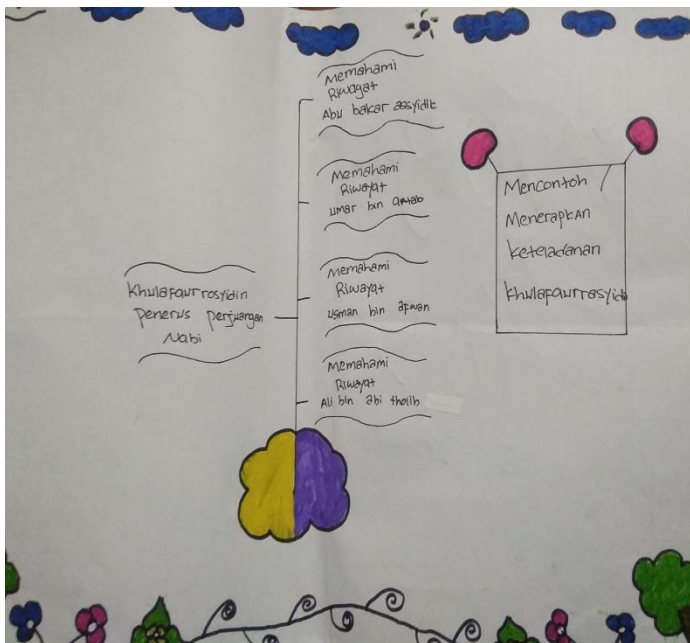 Khulafaurrosyidin
Penerus perjuangan
Nabi
Memahami
Riwayat
Abu bakar assyidik
Memahami
Riwayat
umar bin
Memahami
Riwayat
usman bin
Memahami
Riwayat
Ali bin abi tholib
Mencontoh
Menerapkan
keteladanan
khulafaurrasyidi